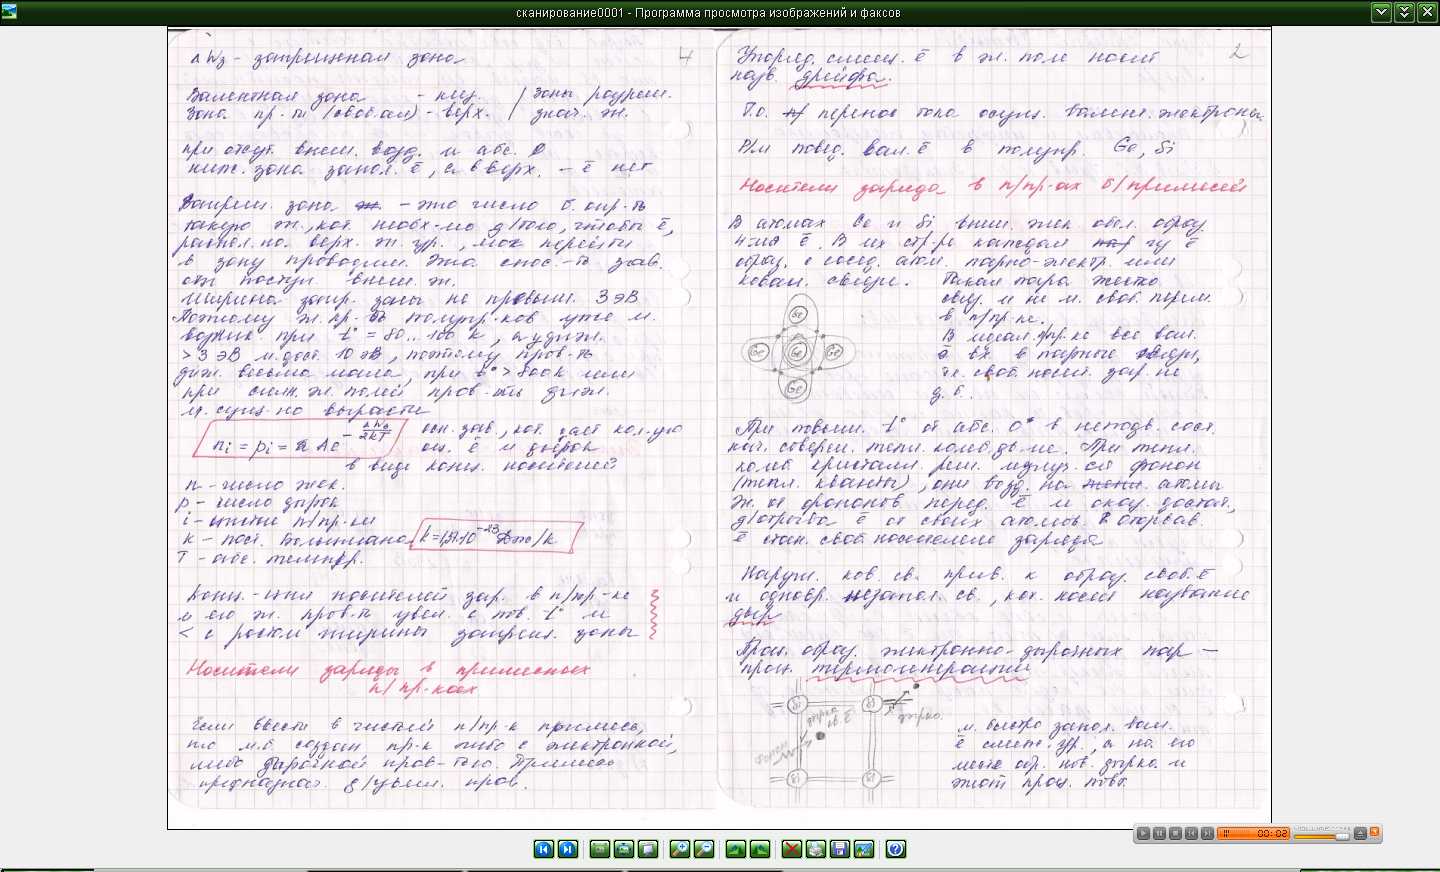 сканирование0001 - Программа просмотра изображений и факсов
ΔWз - запрещенная зона
4
Валентная зона - ниж. / Зоны разреш.
Зона пр-ти (свободная) - верх. / знач. эн.
при отсут. внеш. возд. и абс. 0
ниж. зона запол. ē, а в верх. - ē нет
Запрещ. зона - это число б. опр-ть
такую эн., кот. необх-мо д/того, чтобы ē,
распол. на верх. эн. ур., мог перейти
в зону проводим. Эта спос-ть зав.
от поступ. внеш. эн.
Ширина запр. зоны не превыш. 3 эВ
Поэтому эл. пр-ть полупр-ков уже м.
возник. при t° = 80...100 К, а у диэл.
>3 эВ м. дост. 10 эВ, поэтому пров-ть
диэл. весьма мала, при t° > 800К или
при сильн. эл. полей пров-ть диэл.
м. сущ-но вырасти
ni = pi = Ae^-ΔWз/2kT
осн. зав., кот. дает кол-ую
оц. ē и дырок
в виде конц. носителей
n - число элек.
p - число дырок
i - п/пр-ки
k - пост. Больцмана
k=1,38·10^-23 Дж/k
T - абс. темпер.
Конц-ция носителей зар. в п/пр-ке
и его эл. пров-ть увел. с пов. t° и
< с ростом ширины запрещ. зоны
Носители заряда в примесных
п/пр-ках
Если ввести в чистый п/пр-к примесь,
то м.б. создан пр-к либо с электронной,
либо дырочной пров-тью. Примесь
предназнач. д/увел. пров.
2
Упоряд. смещ. ē в эл. поле носит
назв. дрейфа.
Т.о. перенос тока осущ. валент. электроны.
Р/м повед. вал. ē в полупр. Ge, Si
Носители заряда в п/пр-ах б/примесей
В атомах Ge и Si внеш. элек. обол. образ.
4-мя ē. В их стр-ре каждая из 4х ē
образ. с сосед. атом. парно-электр. или
ковал. связи. Такая пара жестко
связ. и не м. своб. перем.
в п/пр-ке.
В идеал. п/пр-ке все вал.
ē вх. в парные связи,
т.е. своб. носит. зар. не
д.б.
Ge
Ge
Ge
Ge
Ge
При повыш. t° от абс. 0° в неподв. сост.
нач. соверш. тепл. колеб. дв-ие. При тепл.
колеб. кристалл. реш. излуч-ся фонон
(тепл. кванты), они возд. на атомы
Эн. от фононов перед. ē и оказ. достат.
д/отрыва ē от своих атомов. Оторвав.
ē стан. своб. носителем заряда
Наруш. ков. св. прив. к образ. своб. ē
и одновр. незапол. св., кот. носит название
дыр
Проц. образ. электронно-дырочных пар -
проц. термогенерация
Si
Si
Si
Si
дырка
св. ē
фонон
дырка
м. быстро запол. вал.
ē смеж. ур., а на его
месте обр. нов. дырка и
этот проц. повт.
00:02
VOLUME